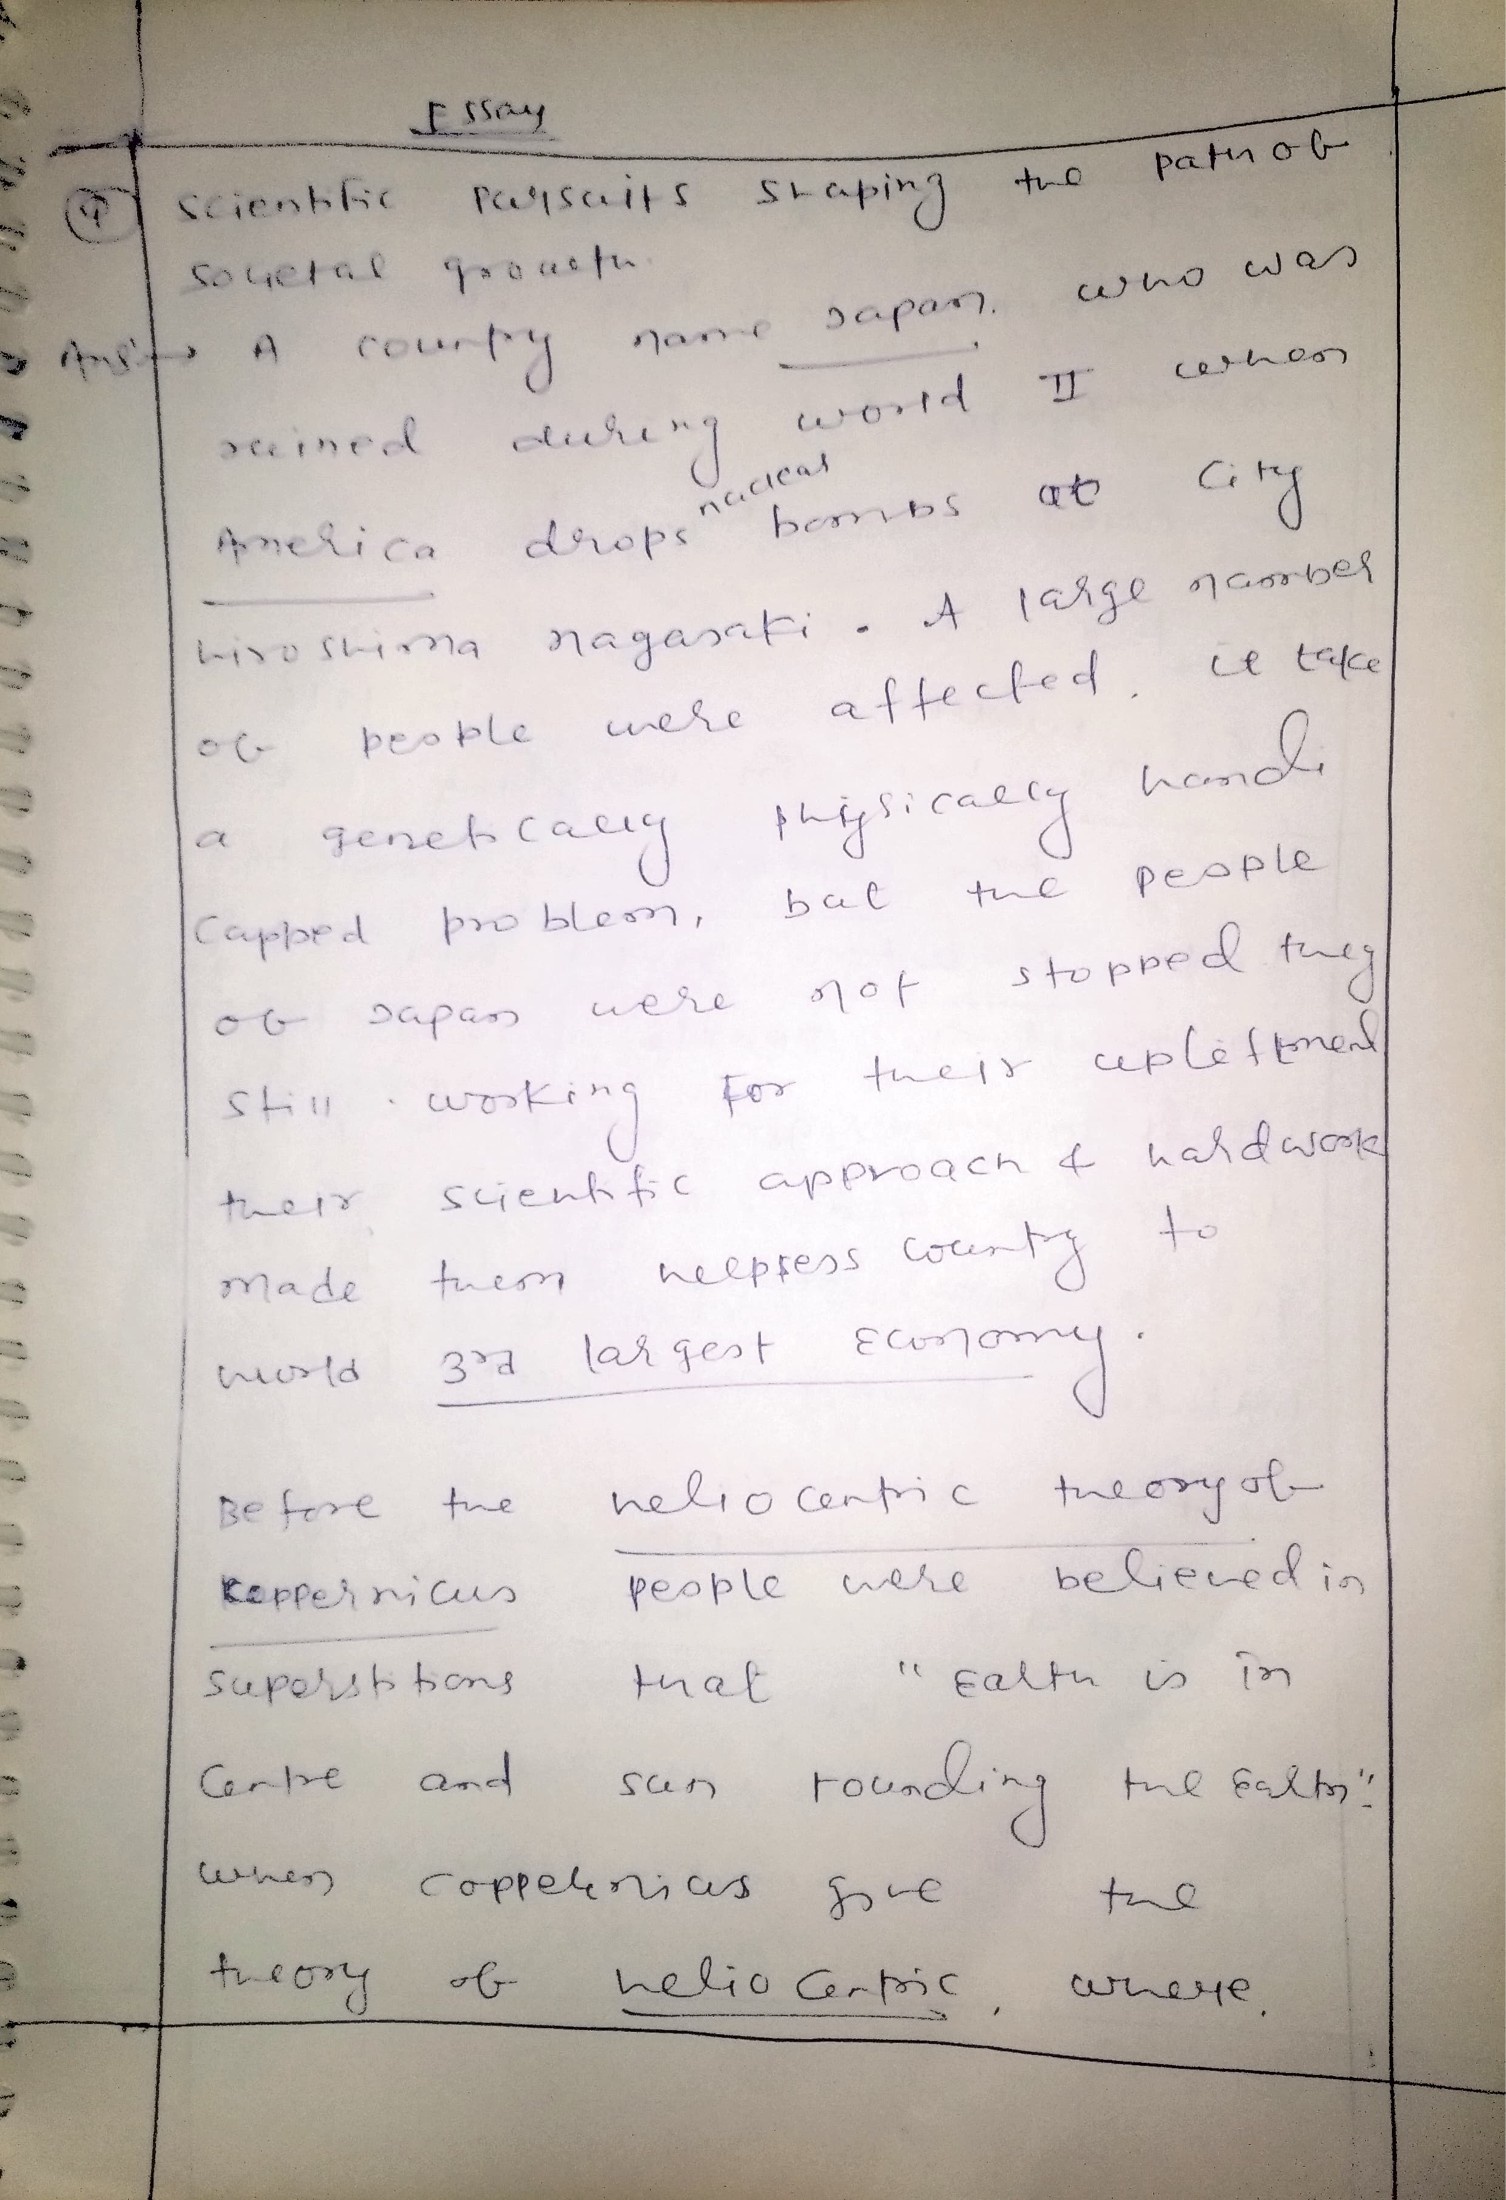 Essay
Q scientific Pursuits shaping the path of
societal growth.
Ans:→ A country name Japan. who was
ruined during world II when
America drops nuclear bombs at city
hiroshima nagasaki. A large number
of people were affected. it take
a genetically physically handi
capped problem, but the people
of Japan were not stopped they
still working for their upliftment
their scientific approach & hardwork
made them helpless country to
world 3rd largest Economy.
Before the heliocentric theory of
Koppernicus people were believed in
superstitions that "Earth is in
Centre and sun rounding the Earth".
when coppernicus give the
theory of heliocentric, where.